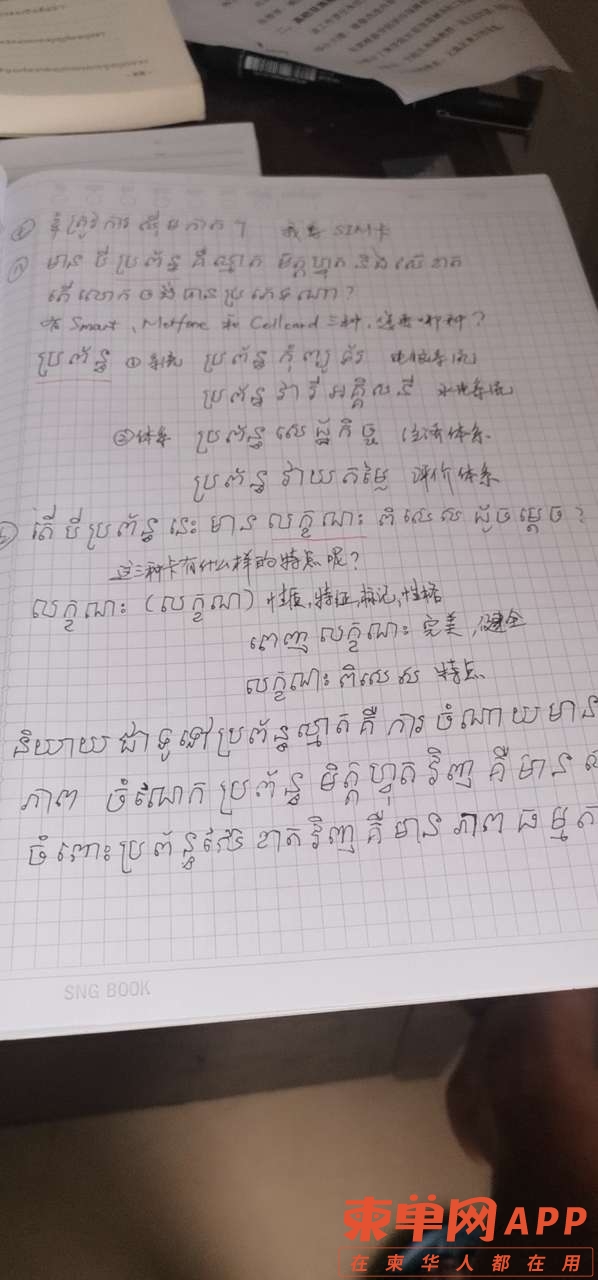 ខ្ញុំត្រូវការស៊ីមកាត។ 我要 SIM卡
មានបីប្រព័ន្ធគឺស្មាត មិត្តហ្វូន និងសែខាត
តើលោកចង់បានប្រភេទណា?
有 Smart, Metfone 和 Cellcard 三种,
ប្រព័ន្ធ ①系统 ប្រព័ន្ធកុំព្យូទ័រ 电脑系统
ប្រព័ន្ធវារីអគ្គិសនី 水电系统
②体系 ប្រព័ន្ធសេដ្ឋកិច្ច 经济体系
ប្រព័ន្ធវាយតម្លៃ 评价体系
តើបីប្រព័ន្ធនេះមានលក្ខណៈពិសេសដូចម្តេច?
这三种卡有什么样的特点呢?
លក្ខណៈ (លក្ខណា) 性质,特征,标记,性格
ពេញលក្ខណៈ 完美,健全
លក្ខណៈពិសេស 特点
និយាយជាទូទៅប្រព័ន្ធស្មាតគឺការចំណាយមាន
ភាព ចំណែកប្រព័ន្ធមិត្តហ្វូតវិញគឺមាន
ចំពោះប្រព័ន្ធសែខាតវិញគឺមានភាពធម្មត
SNG BOOK
柬单网APP
在柬华人都在用